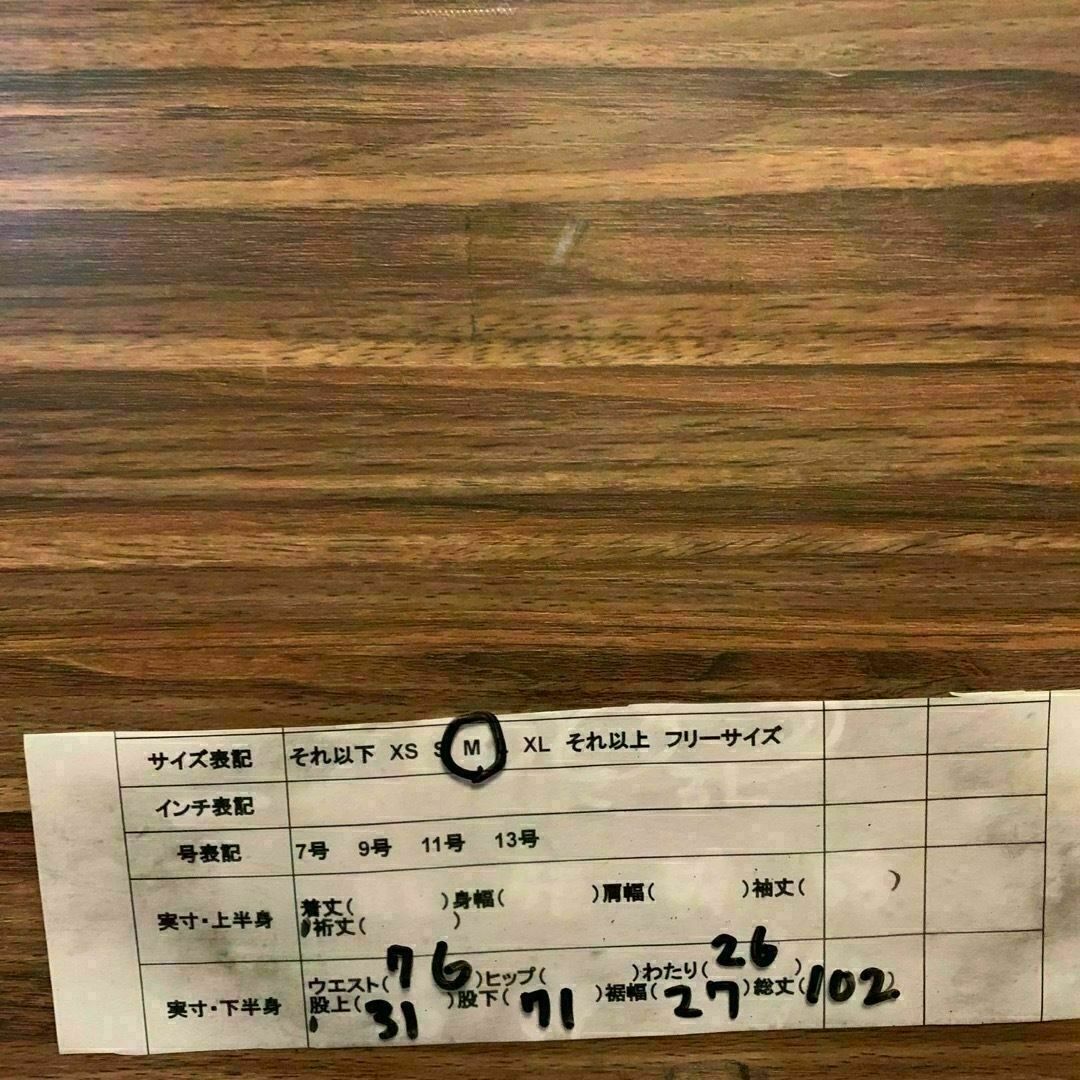 サイズ表記 それ以下 XS S M XL それ以上 フリーサイズ
インチ表記
号表記 7号 9号 11号 13号
実寸・上半身 着丈( )身幅( )肩幅( )袖丈( )
裄丈( )
実寸・下半身 ウエスト(76)ヒップ( )わたり(26)
股上(31)股下(71)裾幅(27)総丈(102)